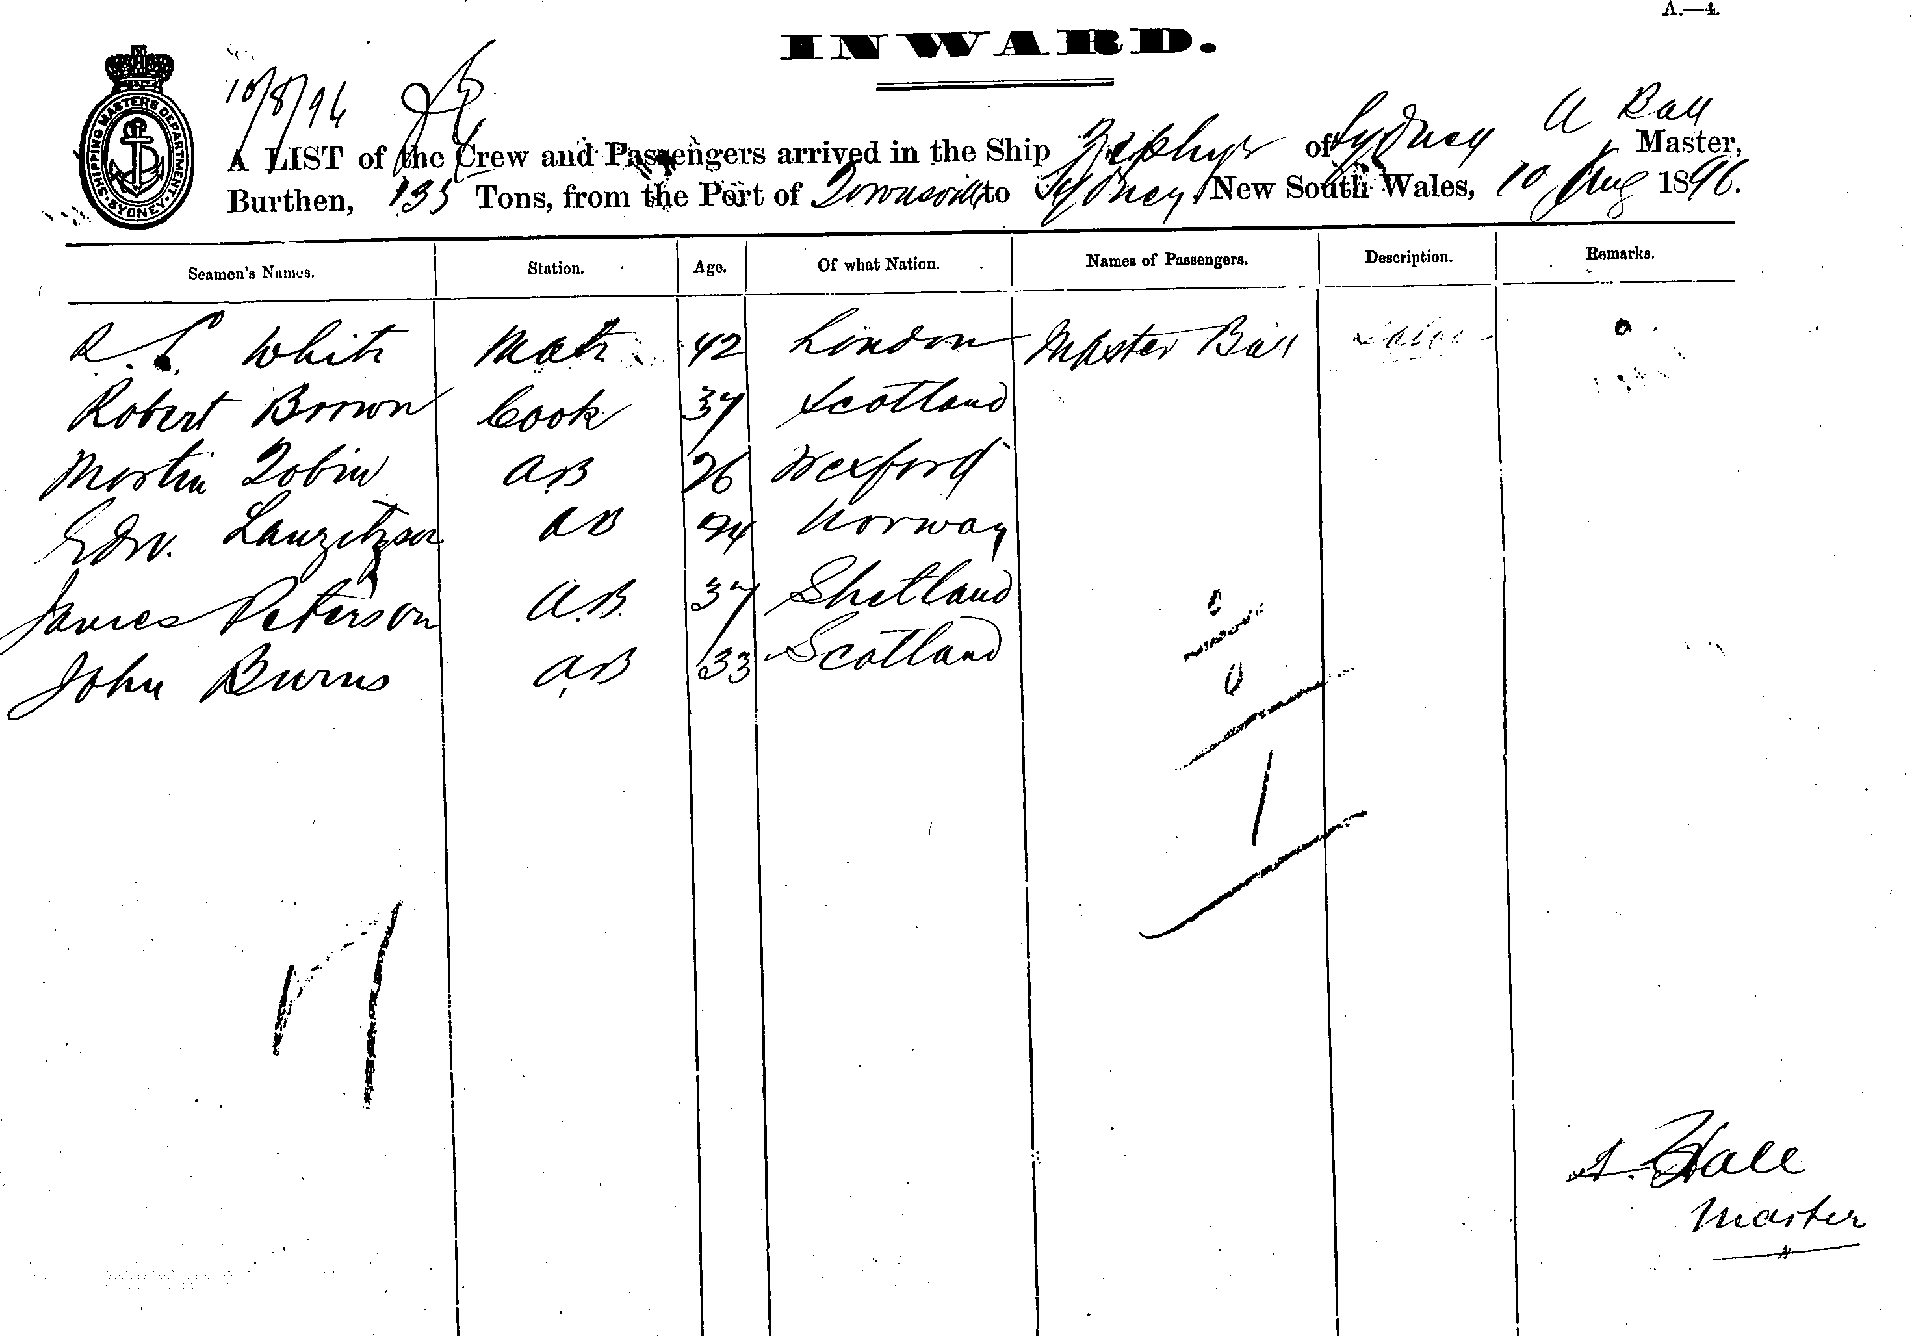 A.—4.
INWARD.
SHIPPING MASTERS DEPARTMENT SYDNEY
10/8/96
A LIST of the Crew and Passengers arrived in the Ship Zephyr of Sydney A Ball Master,
Burthen, 135 Tons, from the Port of Townsville to Sydney New South Wales, 10 Aug 1896.
Seamen's Names. Station. Age. Of what Nation. Names of Passengers. Description. Remarks.
White Mate 42 London Master Ball
Robert Brown Cook 37 Scotland
Martin Tobin AB 26 Wexford
Edw. Lauritzson AB 24 Norway
James Peterson A.B. 37 Shetland
John Burns AB 33 Scotland
0
0
1
7
Master